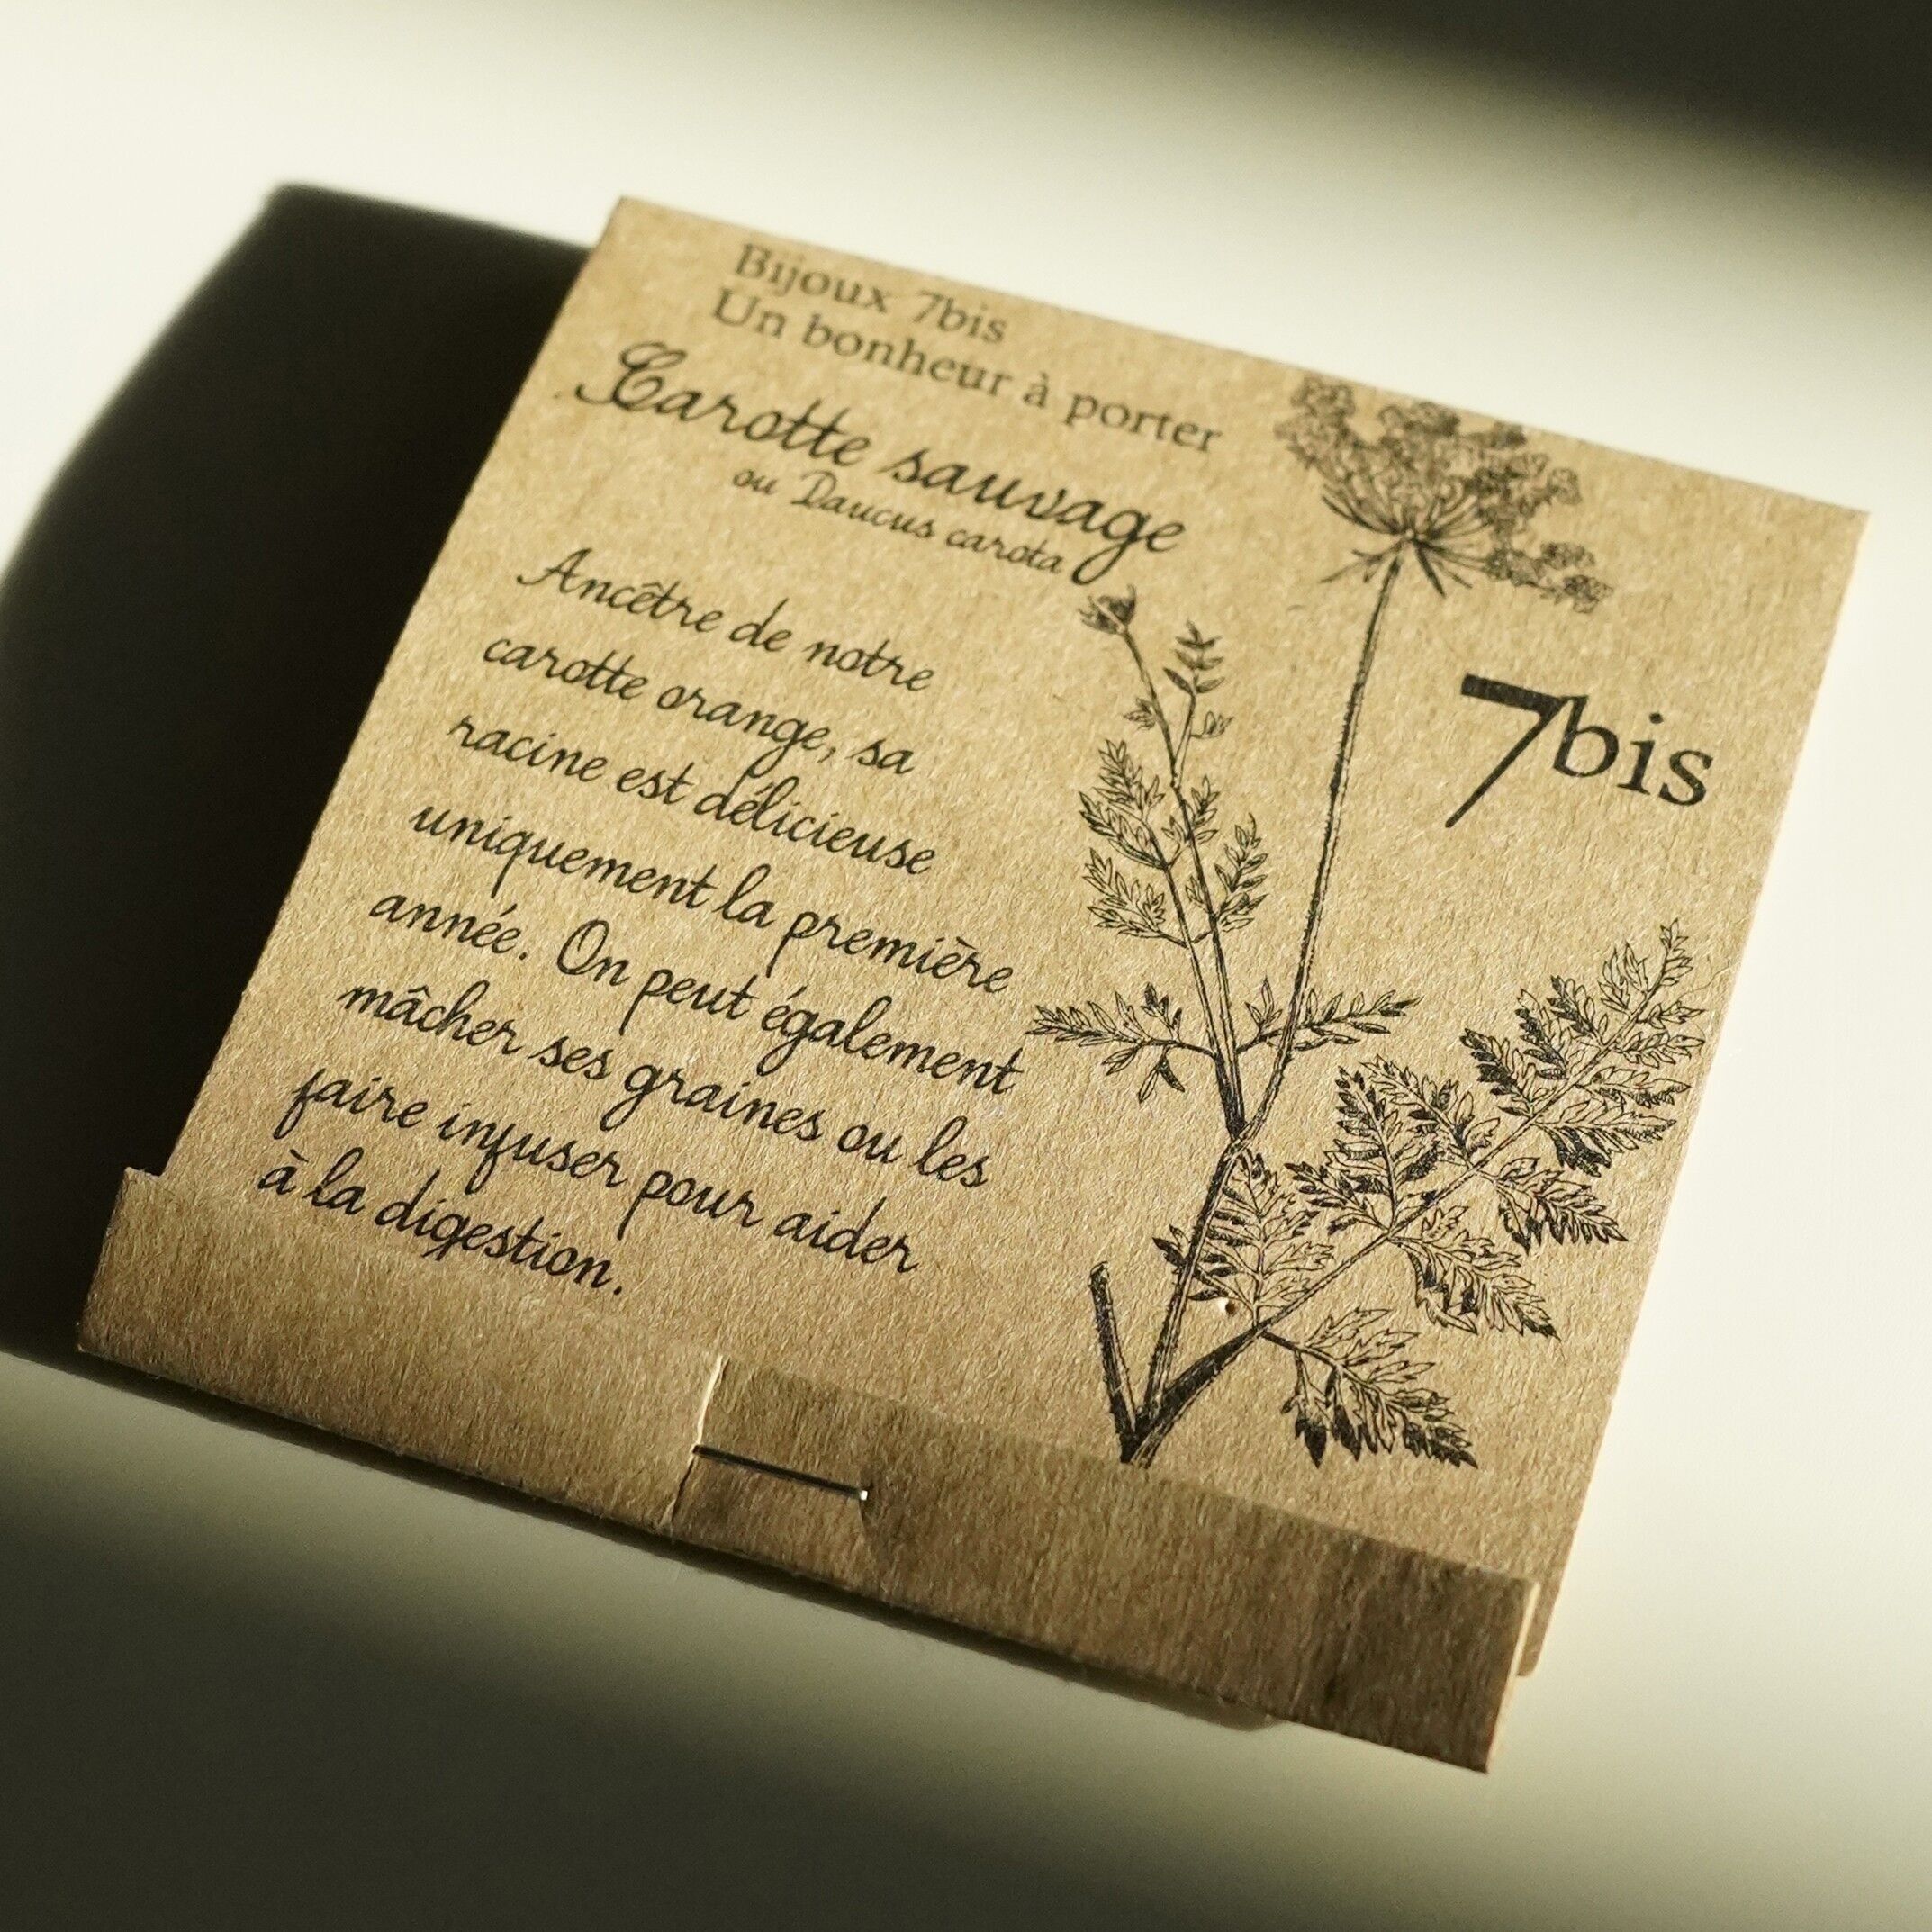 Bijoux 7bis
Un bonheur à porter
Carotte sauvage
ou Daucus carota
Ancêtre de notre
carotte orange, sa
racine est délicieuse
uniquement la première
année. On peut également
mâcher ses graines ou les
faire infuser pour aider
à la digestion.
7bis